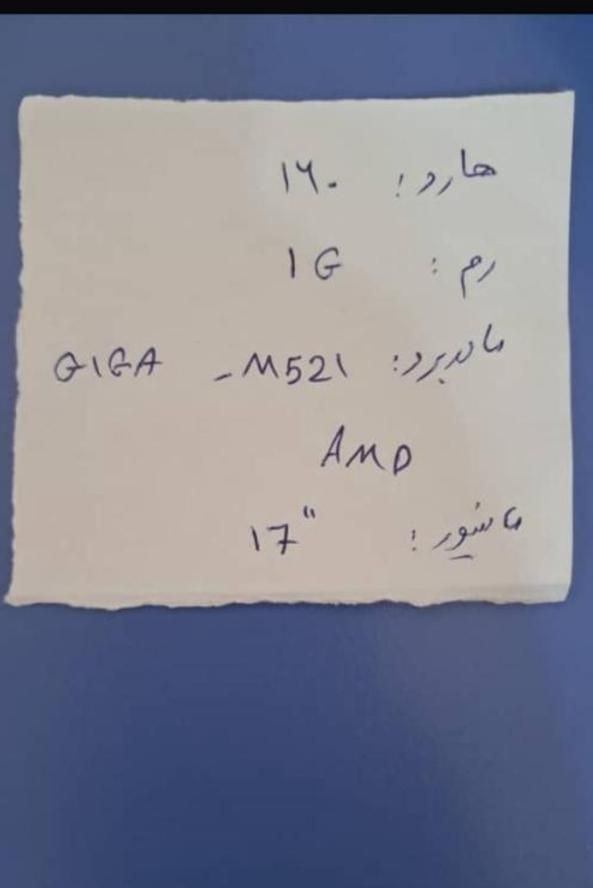 هارد: ۱۶۰
رم: 1G
مادربرد: GIGA - M521
AMD
مانیتور: 17"